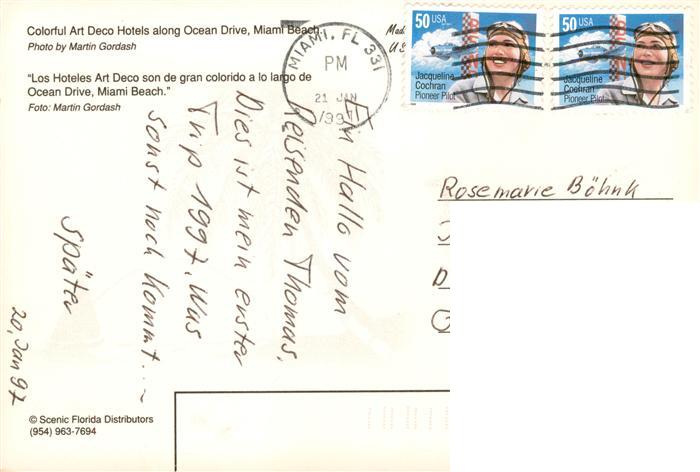 Colorful Art Deco Hotels along Ocean Drive, Miami Beach.
Photo by Martin Gordash
"Los Hoteles Art Deco son de gran colorido a lo largo de
Ocean Drive, Miami Beach."
Foto: Martin Gordash
Made
U.S.
MIAMI, FL 331
PM
21 JAN
50 USA
Jacqueline
Cochran
Pioneer Pilot
50 USA
Jacqueline
Cochran
Pioneer Pilot
Ein Hallo vom
Reisenden Thomas.
Dies ist mein erster
Trip 1997. Was
sonst noch kommt...
Später
20, Jan 97
Rosemarie Böhnk
D
© Scenic Florida Distributors
(954) 963-7694